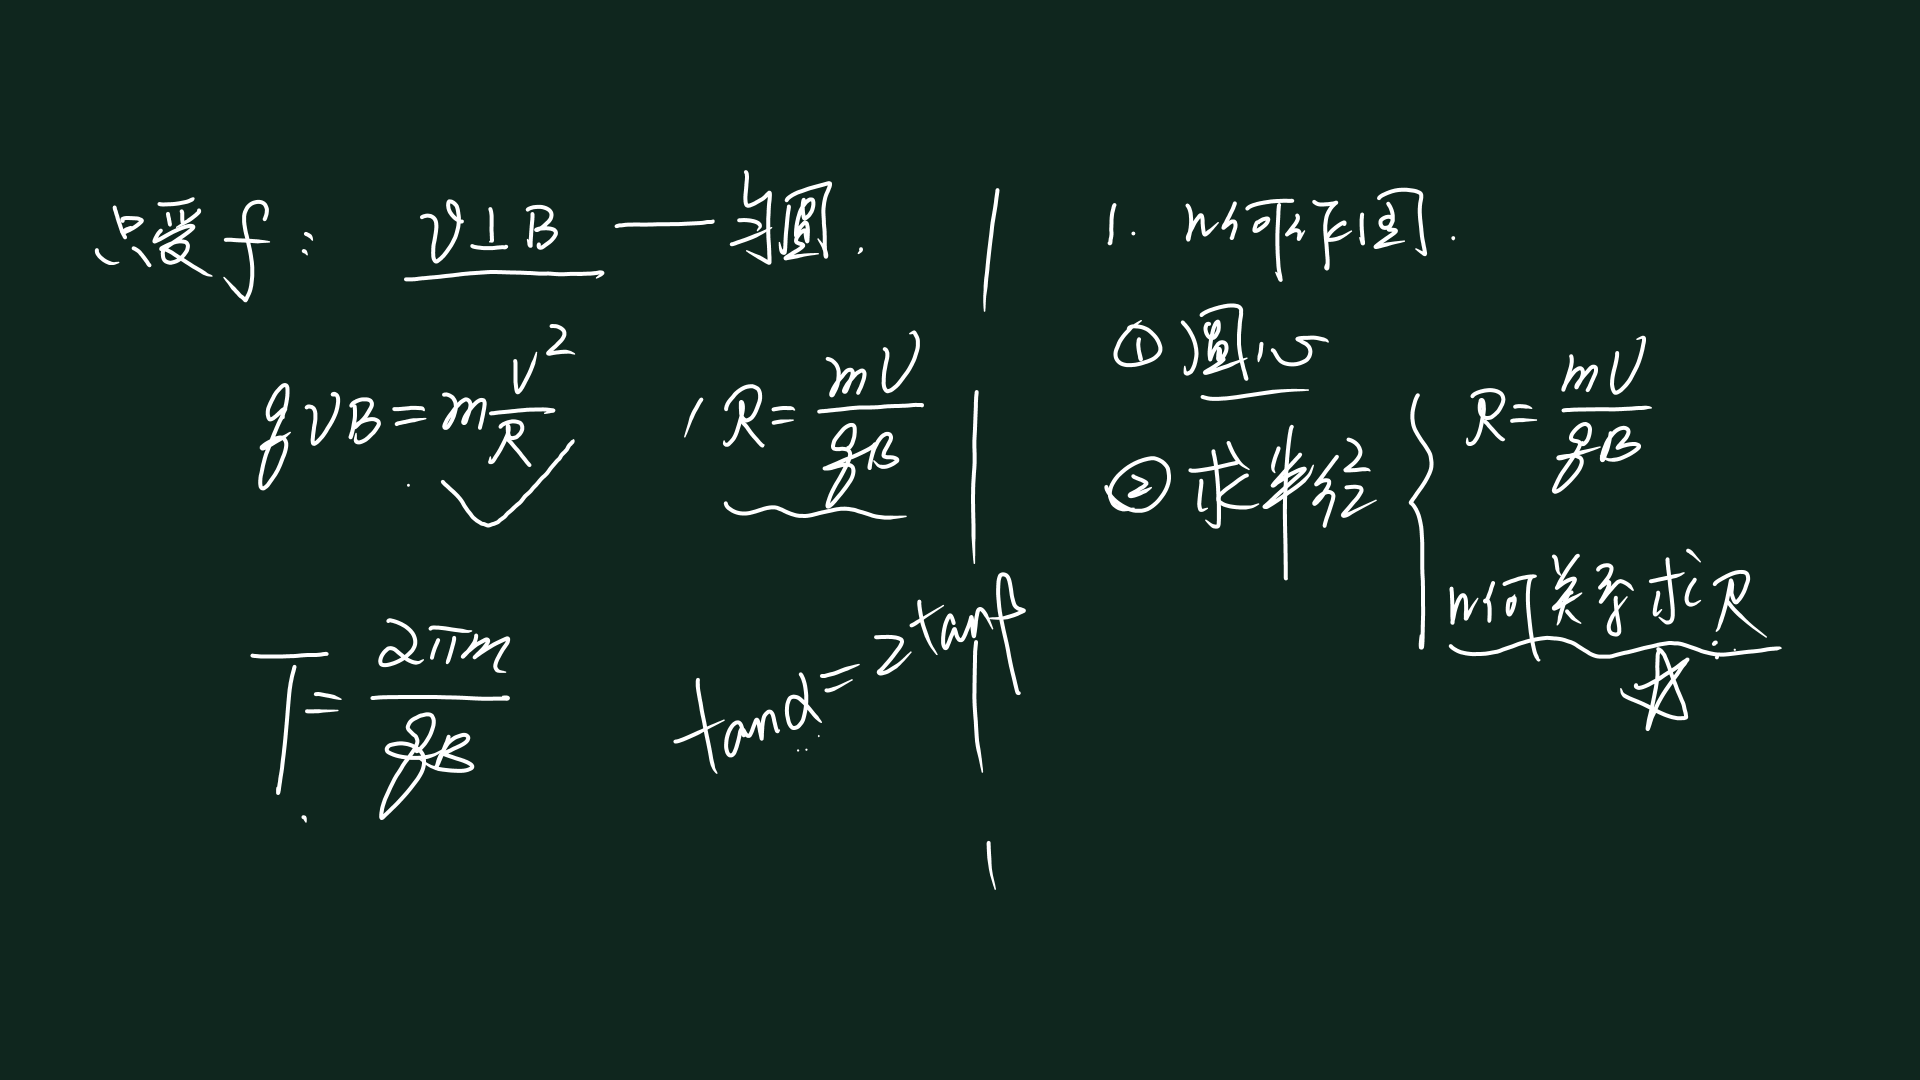 只受f: v⊥B — 匀圆.
qvB=m\frac{v^2}{R} , R=\frac{mv}{qB}
T=\frac{2πm}{qB}
tanα=2tanβ
1. 几何作图.
① 圆心
② 求半径 { R=\frac{mv}{qB}
几何关系求R